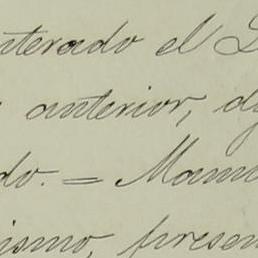 nterado el
anterior,
do. = Manu
ismo, presen